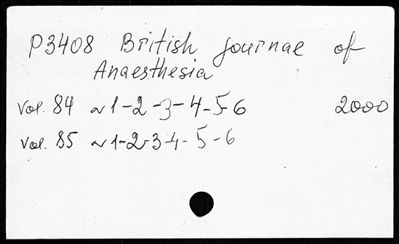 P3408 British Journal of
Anaesthesia
Vol. 84 ~ 1-2-3-4-5-6 2000
Vol. 85 ~ 1-2-3-4-5-6